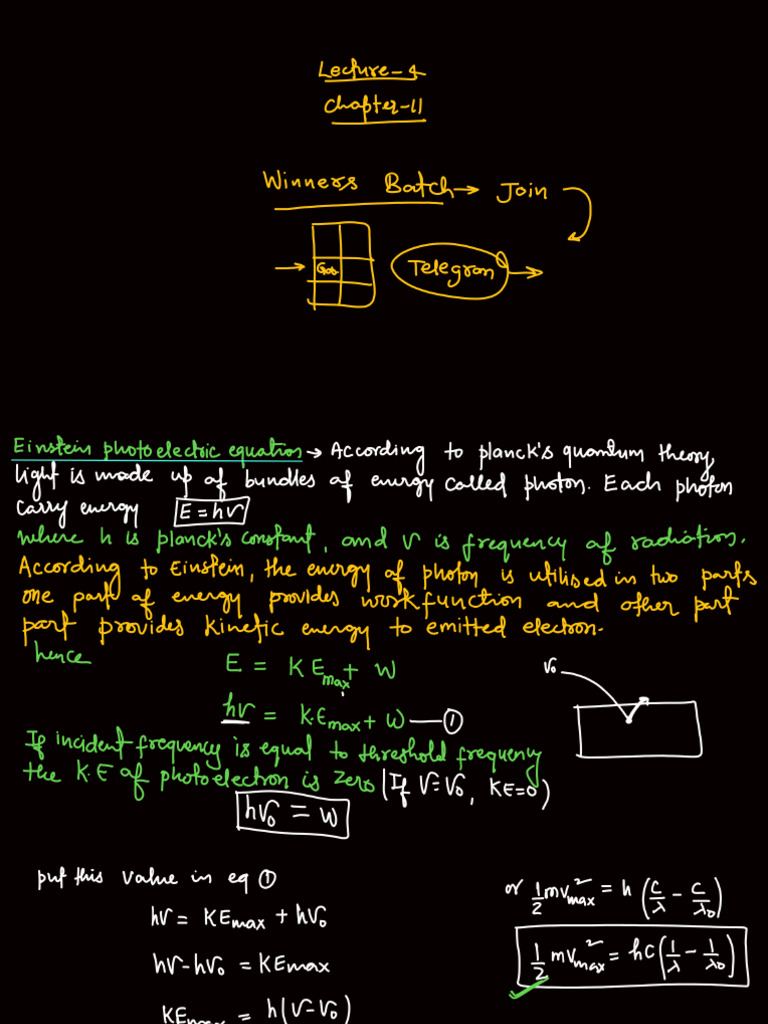 Lecture-4
Chapter-11
Winners Batch → Join
→ Telegram →
Einstein photoelectric equation → According to planck's quantum theory,
light is made up of bundles of energy called photon. Each photon
carry energy E = hν
where h is planck's constant, and ν is frequency of radiation.
According to Einstein, the energy of photon is utilised in two parts
one part of energy provides workfunction and other part
part provides kinetic energy to emitted electron.
hence
E = KEmax + W
ν₀
hν = K.Emax + W — ①
If incident frequency is equal to threshold frequency
the K.E of photoelectron is zero (If ν=ν₀, KE=0)
hν₀ = W
put this value in eq ①
hν = KEmax + hν₀
hν - hν₀ = KEmax
KEmax = h(ν-ν₀)
or 1/2 mv²max = h (c/λ - c/λ₀)
1/2 mv²max = hc(1/λ - 1/λ₀)